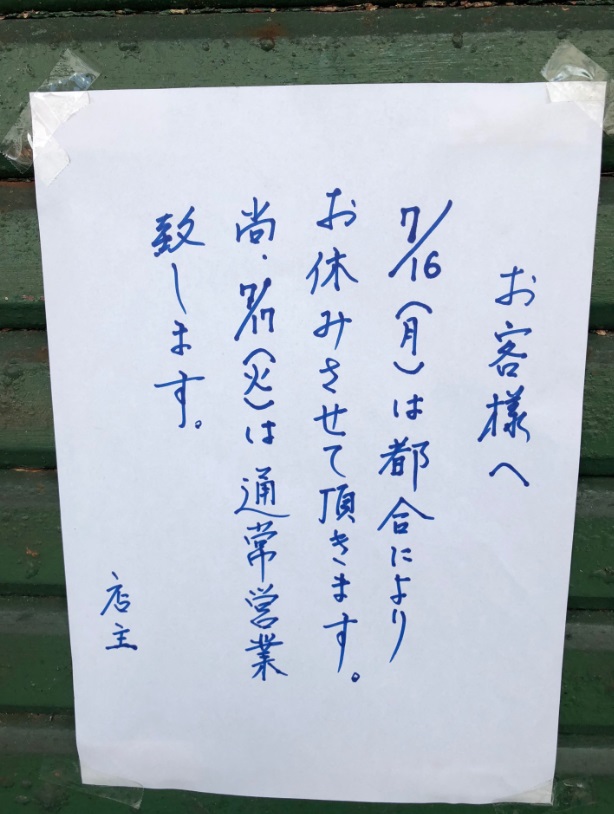 お客様へ
7/16(月)は都合により
お休みさせて頂きます。
尚、7/17(火)は通常営業
致します。
店主